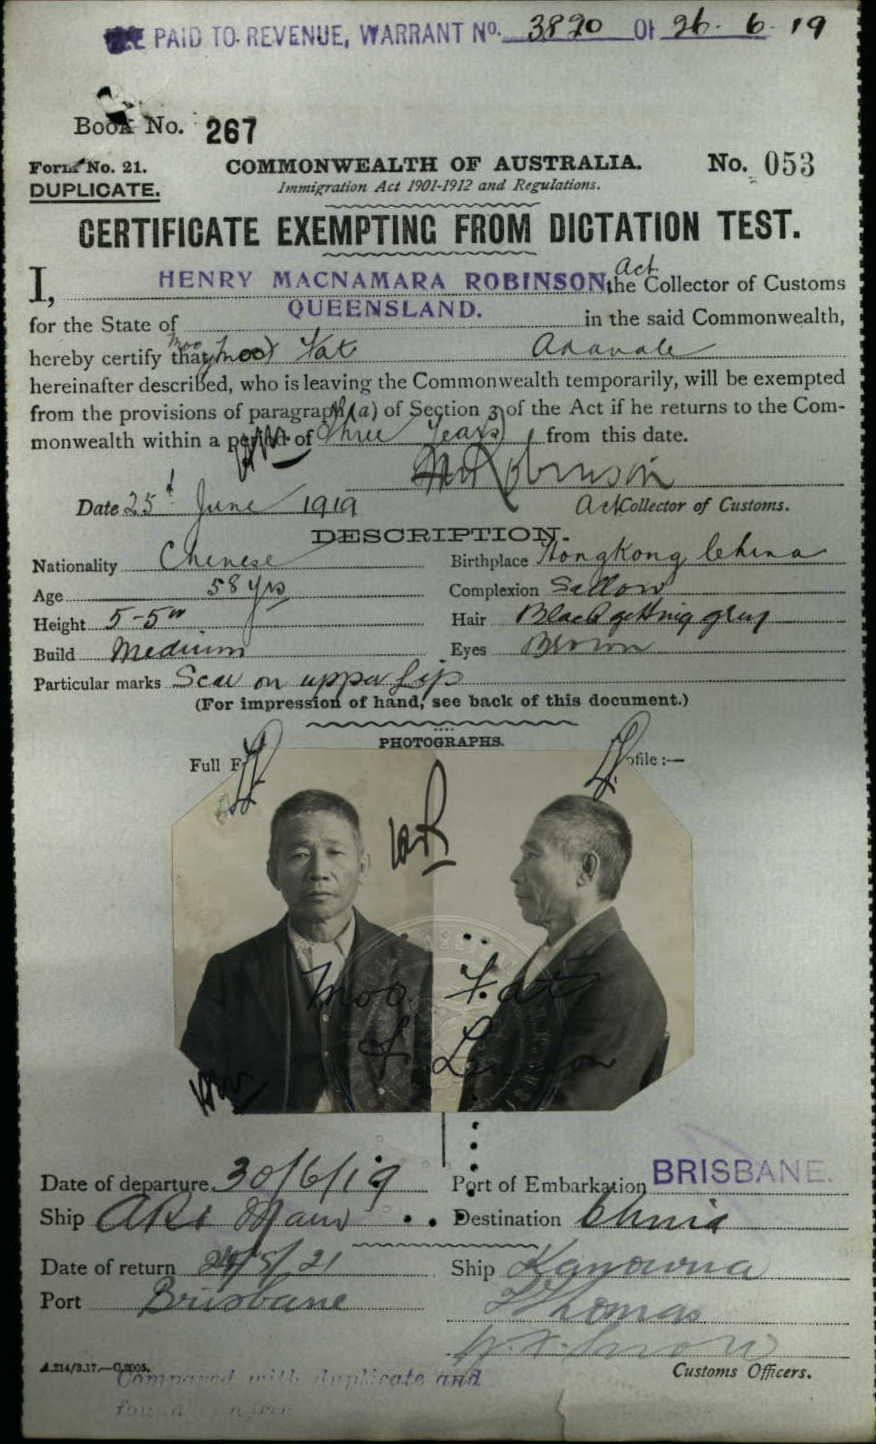 PAID TO REVENUE, WARRANT No. 3820 Of 26. 6. 19
Book No. 267
Form No. 21. COMMONWEALTH OF AUSTRALIA. No. 053
DUPLICATE. Immigration Act 1901-1912 and Regulations.
CERTIFICATE EXEMPTING FROM DICTATION TEST.
I, HENRY MACNAMARA ROBINSON, Act the Collector of Customs
for the State of QUEENSLAND. in the said Commonwealth,
hereby certify that Moo Fat Adavale
hereinafter described, who is leaving the Commonwealth temporarily, will be exempted
from the provisions of paragraph (a) of Section 3 of the Act if he returns to the Com-
monwealth within a period of Three Years from this date.
HM Robinson
Date 25th June 1919 Act Collector of Customs.
DESCRIPTION.
Nationality Chinese Birthplace Hongkong China
Age 58 yrs Complexion Sallow
Height 5-5" Hair Black getting grey
Build Medium Eyes Brown
Particular marks Scar on upper lip
(For impression of hand, see back of this document.)
PHOTOGRAPHS.
Full F ofile :—
Moo Fat
Date of departure 30/6/19 Port of Embarkation BRISBANE.
Ship Destination China
Date of return 24/5/21 Ship Kanowna
Port Brisbane Thomas
Customs Officers.
Compared with duplicate and
found